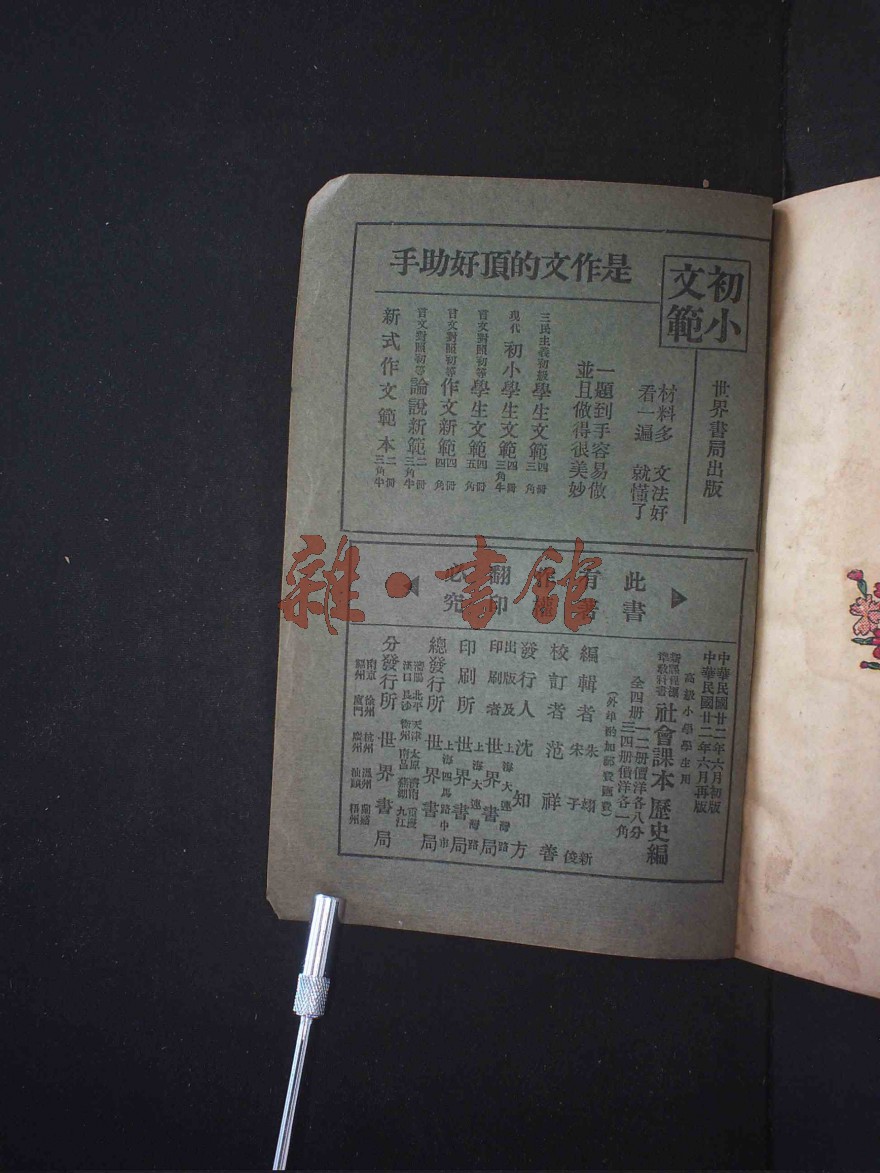 初小
文範
是作文的頂好助手
世界書局出版
材料多 文法好
看一遍 就懂了
一題到手容易做
並且做得很美妙
三民主義初級學生文範 四冊 三角
現代初小學生文範 四冊 三角半
言文對照初等學生文範 四冊 五角
言文對照初等作文新範 四冊 四角
言文對照初等論說新範 二冊 三角半
新式作文範本 二冊 三角半
此書
有著
作權
翻印
必究
雜·書館
中華民國廿二年六月初版
中華民國廿二年六月再版
高級小學學生用
社會課本 歷史編
全四册 一二册價洋各八分
三四册價洋各一角
(外埠酌加郵費匯費)
編輯者 朱翊新
宋子俊
校訂者 范祥善
發行人 沈知方
出版及
印刷者 上海大連灣路
世界書局
印刷所 上海大連灣路
世界書局
總發行所 上海四馬路中市
世界書局
分發行所 世界書局
瀋陽 北平 天津 太原 濟南 重慶
漢口 長沙 衢州 南昌 蕪湖 九江
南京 徐州 杭州 溫州 蘭谿
福州 廈門 廣州 汕頭 梧州